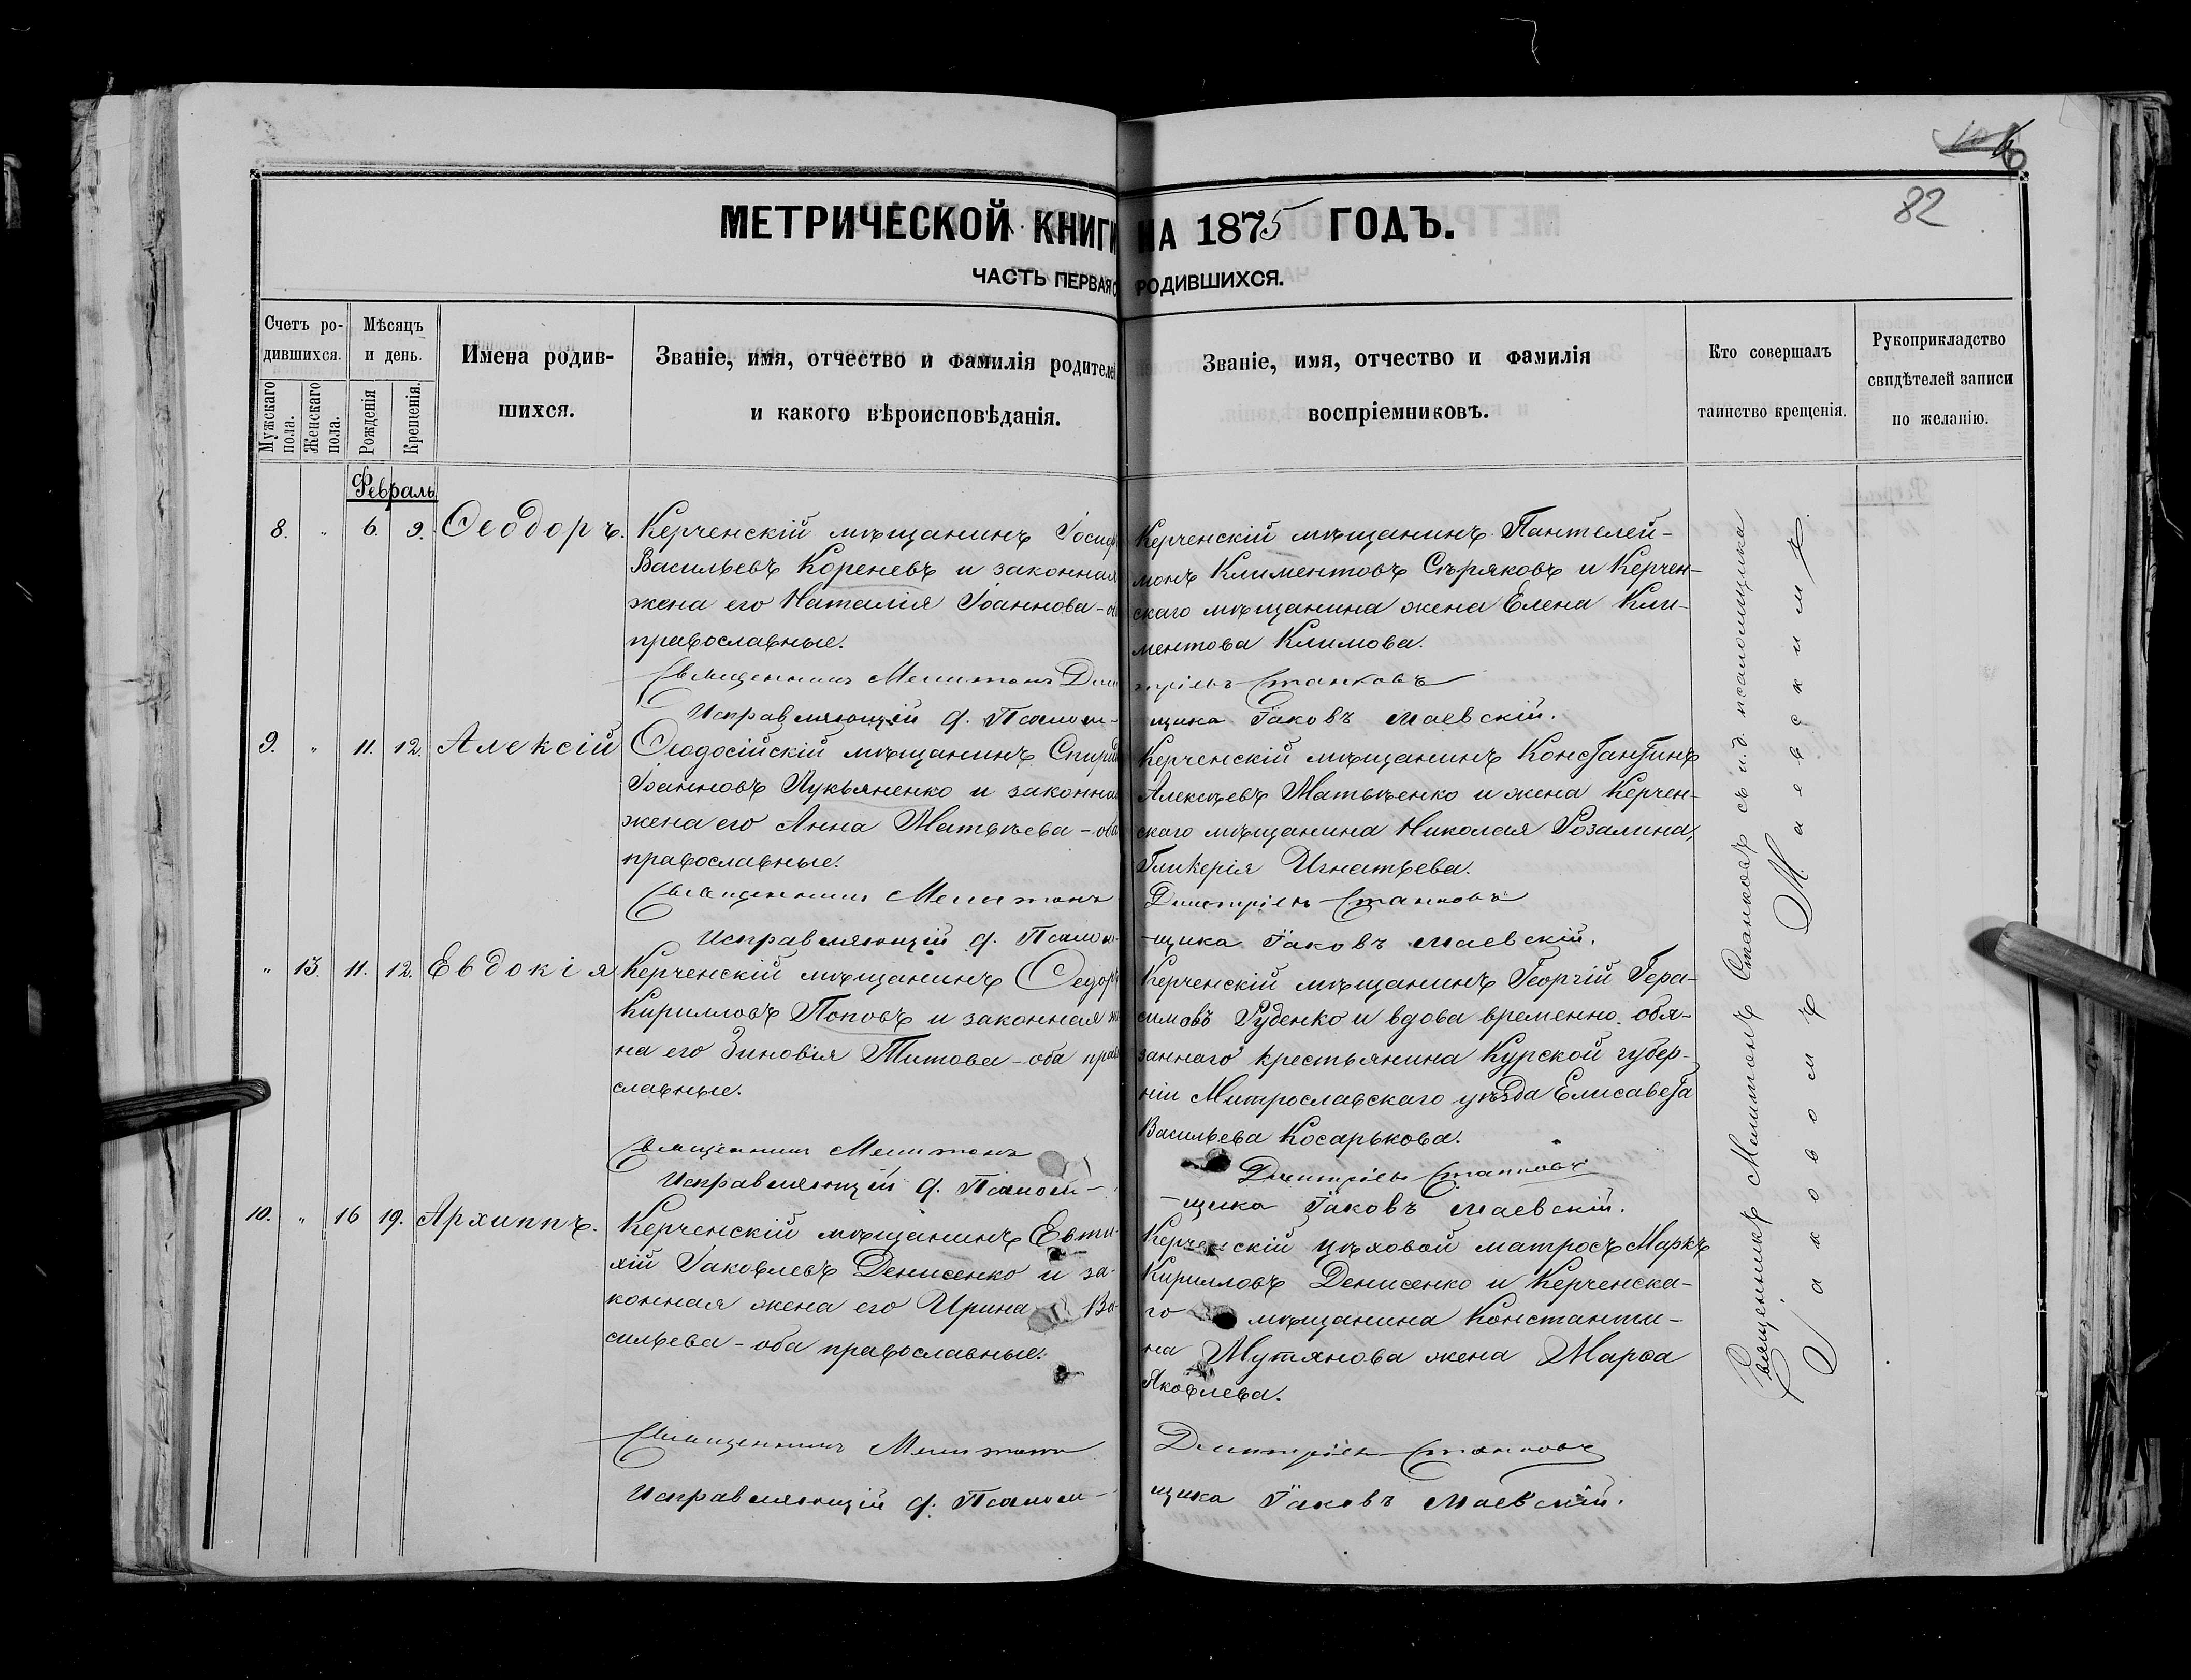 82
МЕТРИЧЕСКОЙ КНИГИ НА 1875 ГОДЪ.
ЧАСТЬ ПЕРВАЯ О РОДИВШИХСЯ.
Счетъ ро-
дившихся.
Мужскаго пола.
Женскаго пола.
Мѣсяцъ
и день.
Рожденія
Крещенія.
Имена родив-
шихся.
Званіе, имя, отчество и фамилія родителей
и какого вѣроисповѣданія.
Званіе, имя, отчество и фамилія
воспріемниковъ.
Кто совершалъ
таинство крещенія.
Рукоприкладство
свидѣтелей записи
по желанію.
Февраль
8. " 6. 9. Ѳеодоръ.
Керченскій мѣщанинъ Іосиф
Васильевъ Кореневъ и законная
жена его Наталія Іоаннова - о
православные.
Священникъ Мелитонъ Дми
Исправляющій д. Псалом-
Керченскій мѣщанинъ Пантелей-
монъ Климентовъ Сѣряковъ и Керчен-
скаго мѣщанина жена Елена Кли-
ментова Климова.
тріевъ Станковъ
щика Іаковъ Маевскій.
9. " 11. 12. Алексій
Ѳеодосійскій мѣщанинъ Спири
Іоанновъ Лукьяненко и законна
жена его Анна Матвѣева - оба
православные.
Священникъ Мелитонъ
Исправляющій д. Псалом-
Керченскій мѣщанинъ Константинъ
Алексѣевъ Матвѣенко и жена Керчен-
скаго мѣщанина Николая Розалина,
Гликерія Игнатьева.
Дмитріевъ Станковъ
-щика Іаковъ Маевскій.
" 13. 11. 12. Евдокія
Керченскій мѣщанинъ Ѳедоръ
Кирилловъ Поповъ и законная ж
на его Зиновія Титова - оба прав
славные.
Священникъ Мелитонъ
Исправляющій д. Псалом-
Керченскій мѣщанинъ Георгій Гера-
симовъ Руденко и вдова временно обя-
заннаго крестьянина Курской губер-
ніи Митрославскаго уѣзда Елисавета
Васильева Косарькова.
Дмитріевъ Станковъ
-щика Іаковъ Маевскій.
10. " 16 19. Архиппъ.
Керченскій мѣщанинъ Евти-
хій Іаковлевъ Денисенко и за-
конная жена его Ирина Ва-
сильева - оба православные.
Священникъ Мелитонъ
Исправляющій д. Псалом-
Керченскій цѣховой матросъ Маркъ
Кирилловъ Денисенко и Керченска-
го мѣщанина Константи-
на Мутянова жена Марѳа
Яковлева.
Дмитріевъ Станковъ
щика Іаковъ Маевскій.
Священникъ Мелитонъ Станковъ съ и.д. псаломщика
Іаковомъ Маевскимъ.